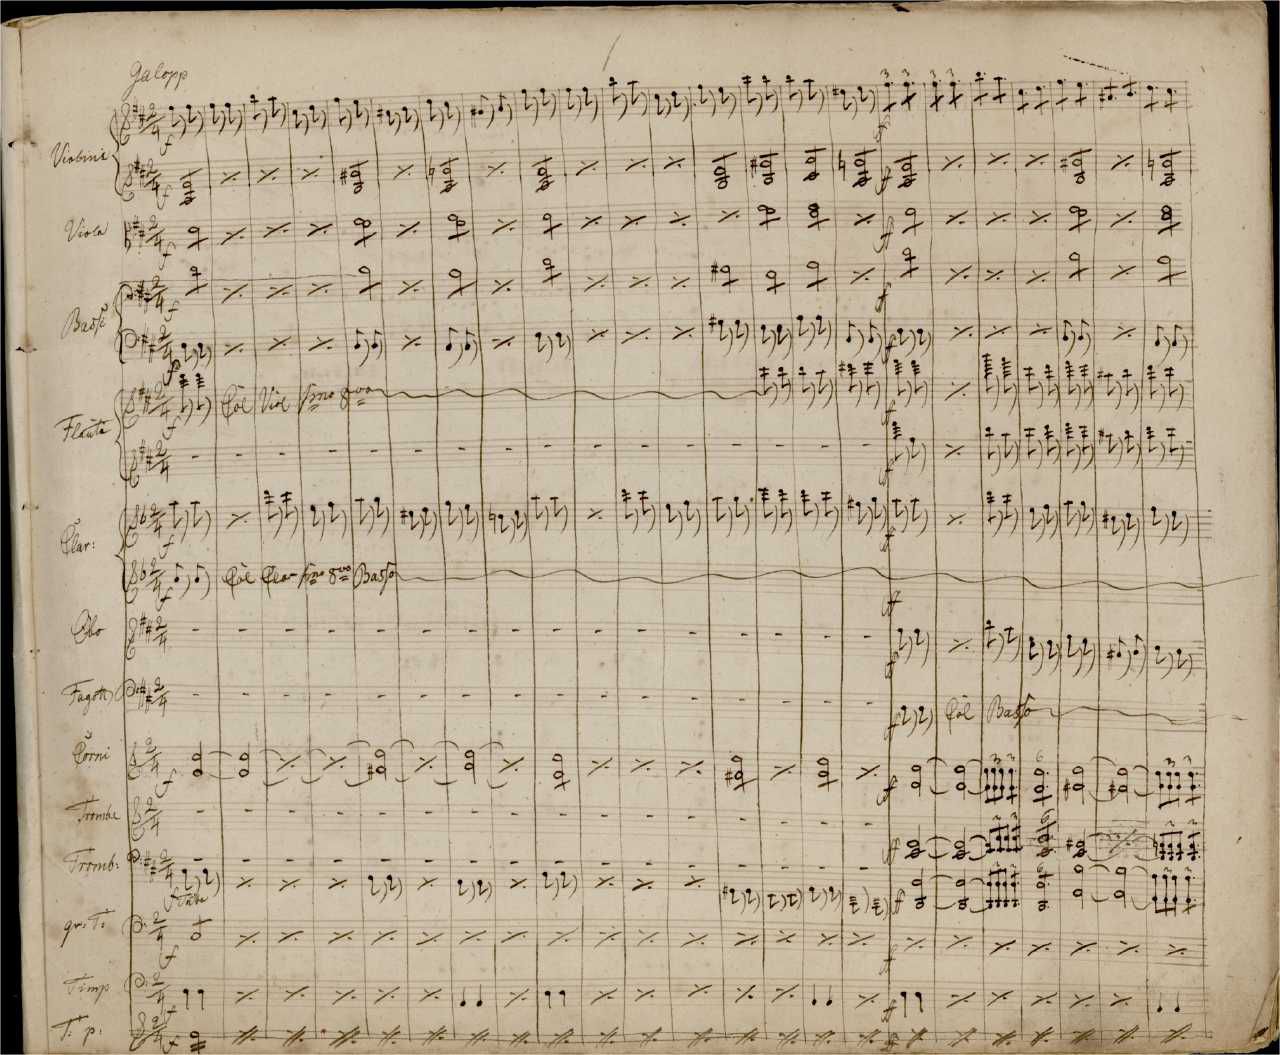 Galopp
Violini
Viola
Bassi
Flauti
Col Viol
8va
Clar:
Col Clar 8va Basso
Obo
Fagotti
Col Basso
Corni
Trombe
Tromb:
Tuba
gr. T:
Timp
T. p: